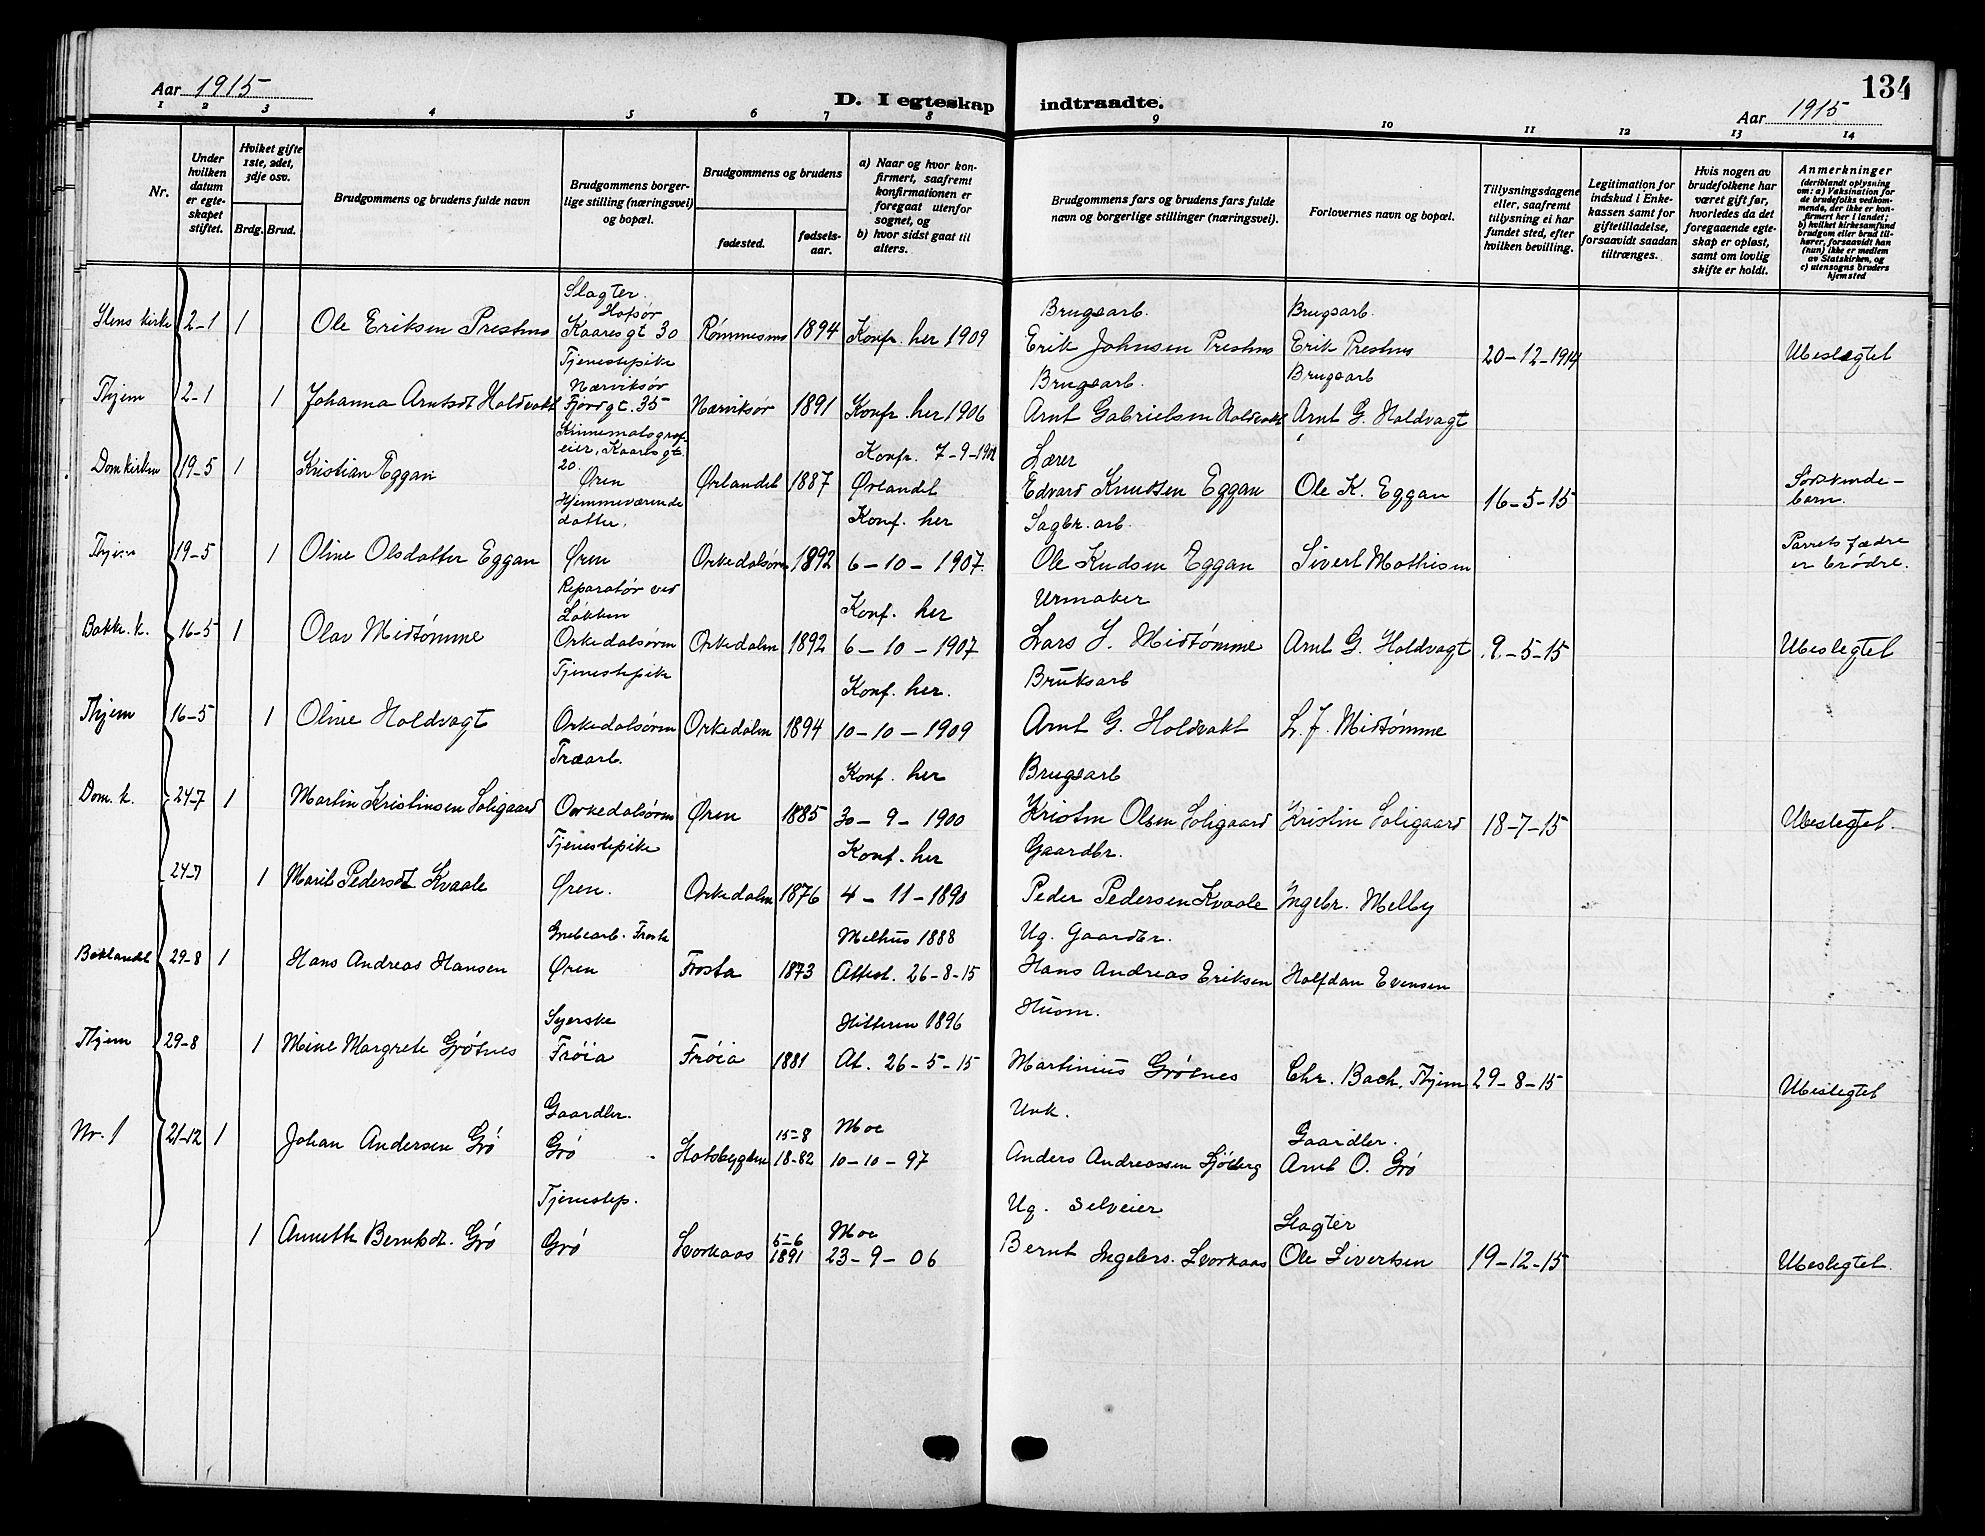 Aar 1915
D. I egteskap indtraadte.
134
Aar 1915
1 2 3 4 5 6 7 8 9 10 11 12 13 14
Nr.
Under hvilken datum er egteskapet stiftet.
Hviket gifte 1ste, 2det, 3dje osv.
Brdg. Brud.
Brudgommens og brudens fulde navn
Brudgommens borgerlige stilling (næringsvei) og bopæl.
Brudgommens og brudens
fødested.
fødselsaar.
a) Naar og hvor konfirmert, saafremt konfirmationen er foregaat utenfor sognet, og
b) hvor sidst gaat til alters.
Brudgommens fars og brudens fars fulde navn og borgerlige stillinger (næringsvei).
Forlovernes navn og bopæl.
Tillysningsdagene eller, saafremt tillysning ei har fundet sted, efter hvilken bevilling.
Legitimation for indskud i Enkekassen samt for giftetilladelse, forsaavidt saadan tiltrænges.
Hvis nogen av brudefolkene har været gift før, hvorledes da det foregaaende egteskap er opløst, samt om lovlig skifte er holdt.
Anmerkninger (deriblandt oplysning om: a) Vaksination for de brudefolks vedkommende, der ikke er konfirmert her i landet; b) hvilket kirkesamfund brudgom eller brud tilhører, forsaavidt han (hun) ikke er medlem av Statskirken, og c) utensogns bruders hjemsted
Slagter.
Hofsør
Ilens kirke 2-1 1 Ole Eriksen Prestmo Kaaresgt 30 Rømmesmo 1894 Konfr. her 1909
Brugsarb. Brugsarb.
Erik Johnsen Prestmo Erik Prestmo 20-12-1914 Ubeslægtet
Tjenestepike
Nærviksør
Thjem 2-1 1 Johanna Arntsdt Holdvakt Fjordgt. 35 Nærviksør 1891 Konfr. her 1906
Brugsarb. Brugsarb
Arnt Gabrielsen Holdvakt Arnt G. Holdvagt
Kinnematografeier, Kaaresgt. 20.
Domkirken 19-5 1 Kristian Eggan Øren Ørlandet 1887 Konfr. 7-9-1902 Ørlandet
Lærer
Edvard Knudsen Eggan Ole K. Eggan 16-5-15 Sødskendebarn.
Hjemmeværende datter.
Thjem 19-5 1 Oline Olsdatter Eggan Øren Orkedalsøren 1892 Konf. her 6-10-1907
Sagbr. arb.
Ole Knudsen Eggan Sivert Mathisen Parrets fædre er brødre.
Reparatør ved Løkken
Bakke. k. 16-5 1 Olav Midtømme Orkedalsøren Orkedalen 1892 Konf. her 6-10-1907
Urmaker
Lars J. Midtømme Arnt G. Holdvagt 9.-5-15 Ubeslegtet
Tjenestepike
Thjem 16-5 1 Oline Holdvagt Orkedalsøren Orkedalen 1894 Konf. her. 10-10-1909
Bruksarb
Arnt G. Holdvakt L. J. Midtømme
Træarb.
Dom. k. 24-7 1 Martin Kristinsen Soligaard Orkedalsøren Øren 1885 Konf. her 30-9-1900
Brugsarb
Kristen Olsen Soligaard Kristin Soligaard 18-7-15 Ubeslegtet.
Tjenestepike
24-7 1 Marit Pedersdt Kvaale Øren. Orkedalen 1876 Konf. her 4-11-1890
Gaardbr.
Peder Pedersen Kvaale Ingebr. Melby
Grubearb. Frosta
Baklandet 29-8 1 Hans Andreas Hansen Øren Frosta 1873 Melhus 1888 Attest. 26-8-15
Ug. Gaardbr.
Hans Andreas Eriksen Halfdan Evensen
Syerske
Thjem 29-8 1 Mine Margrete Grøtnes Frøia Frøia 1881 Hitteren 1896 At. 26-5-15
Husm.
Martinius Grøtnes Chr. Bach, Thjem 29-8-15 Ubeslegtet
Gaardbr.
Nr. 1 21-12 1 Johan Andersen Grø Grø 15-8 18-82 Moe 10-10-97
Unk. Gaardbr.
Anders Andreassen Sjøberg Arnt O. Grø
Tjenestep.
1 Bernhdt. Grø Grø Svorkaas 5-6 1891 Moe 23-9-06
Ug. Selveier Slagter
Bernt Ingebrs. Svorkaas Ole Sivertsen 19-12-15 Ubeslegtet.